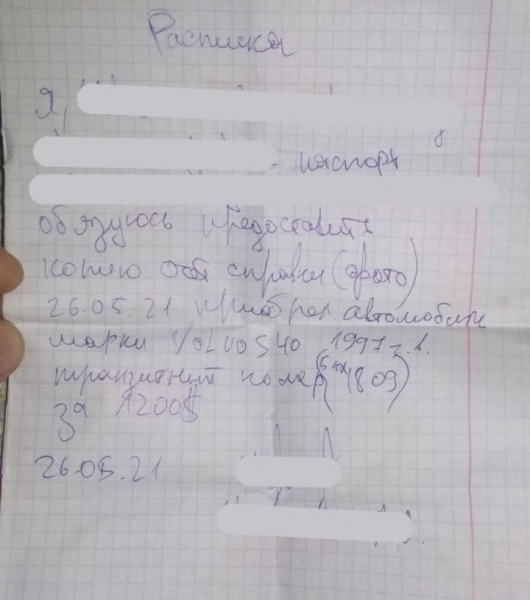 Расписка
Я,
паспорт
обязуюсь предоставить
копию справки (фото)
26.05.21 приобрел автомобиль
марки VOLVO S40 1997 г.в.
транзитный номер 1809)
за 1200$
26.05.21